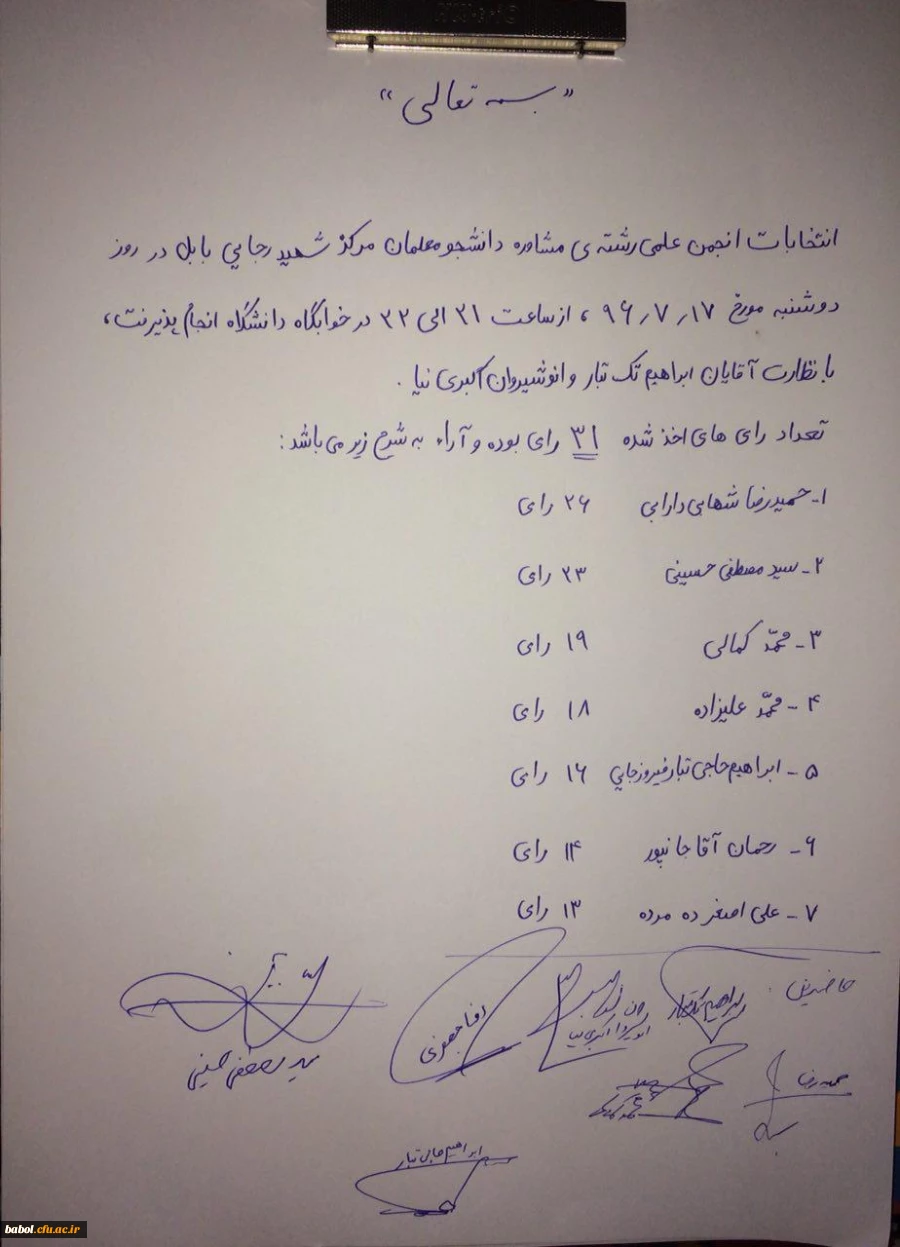 «بسمه تعالی»
انتخابات انجمن علمی رشته ی مشاوره دانشجو معلمان مرکز شهید رجایی بابل در روز
دوشنبه مورخ ۹۶/۷/۱۷ ، از ساعت ۲۱ الی ۲۲ در خوابگاه دانشگاه انجام پذیرفت،
با نظارت آقایان ابراهیم تک تبار و انوشیروان اکبری نیا .
تعداد رای های اخذ شده ۳۱ رای بوده و آراء به شرح زیر می باشد:
۱- حمیدرضا شهابی دارابی ۲۶ رای
۲- سید مصطفی حسینی ۲۳ رای
۳- محمّد کمالی ۱۹ رای
۴- محمّد علیزاده ۱۸ رای
۵- ابراهیم حاجی تبار فیروزجایی ۱۶ رای
۶- رحمان آقاجانپور ۱۴ رای
۷- علی اصغر ده مرده ۱۳ رای
حاضرین:
ابراهیم تک تبار
انوشیروان اکبری نیا
رضا جعفری
سید مصطفی حسینی
حمیدرضا
ابراهیم حاجی تبار
babol.cfu.ac.ir